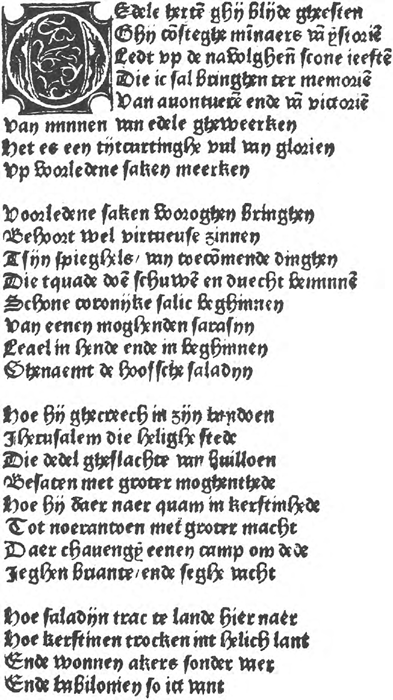 O Edele hertē ghij blijde gheesten
Ghij cōsteghe mīnaers vā ystoriē
Ledt vp de navolghen̄ scone ieestē
Die ic sal bringhen ter memoriē
Van auontuerē ende vā victoriē
Van minnen van edele gheweerken
Het es een tijtcurtinghe vul van glorien
Vp voorledene saken meerken

Voorledene saken vooroghen bringhen
Behoort wel virtueuse zinnen
Tsijn spieghels/ van toecōmende dinghen
Die tquade doē schuwē en duecht beminnē
Schone coronijke salic beghinnen
Van eenen moghenden sarasyn
Leael in hende ende in beghinnen
Ghenaemt de hoofsche saladyn

Hoe hij ghecreech in zijn handoen
Jherusalem die helighe stede
Die dedel gheslachte van builloen
Besaten met groter moghenthede
Hoe hij daer naer quam in kerstinhede
Tot noerantoen met groter macht
Daer chauengy eenen camp om dede
Jeghen bruante/ende seghe vacht

Hoe saladijn trac te lande hier naer
Hoe kerstinen trocken int helich lant
Ende wonnen akers sonder waer
Ende babilonien so ict vant